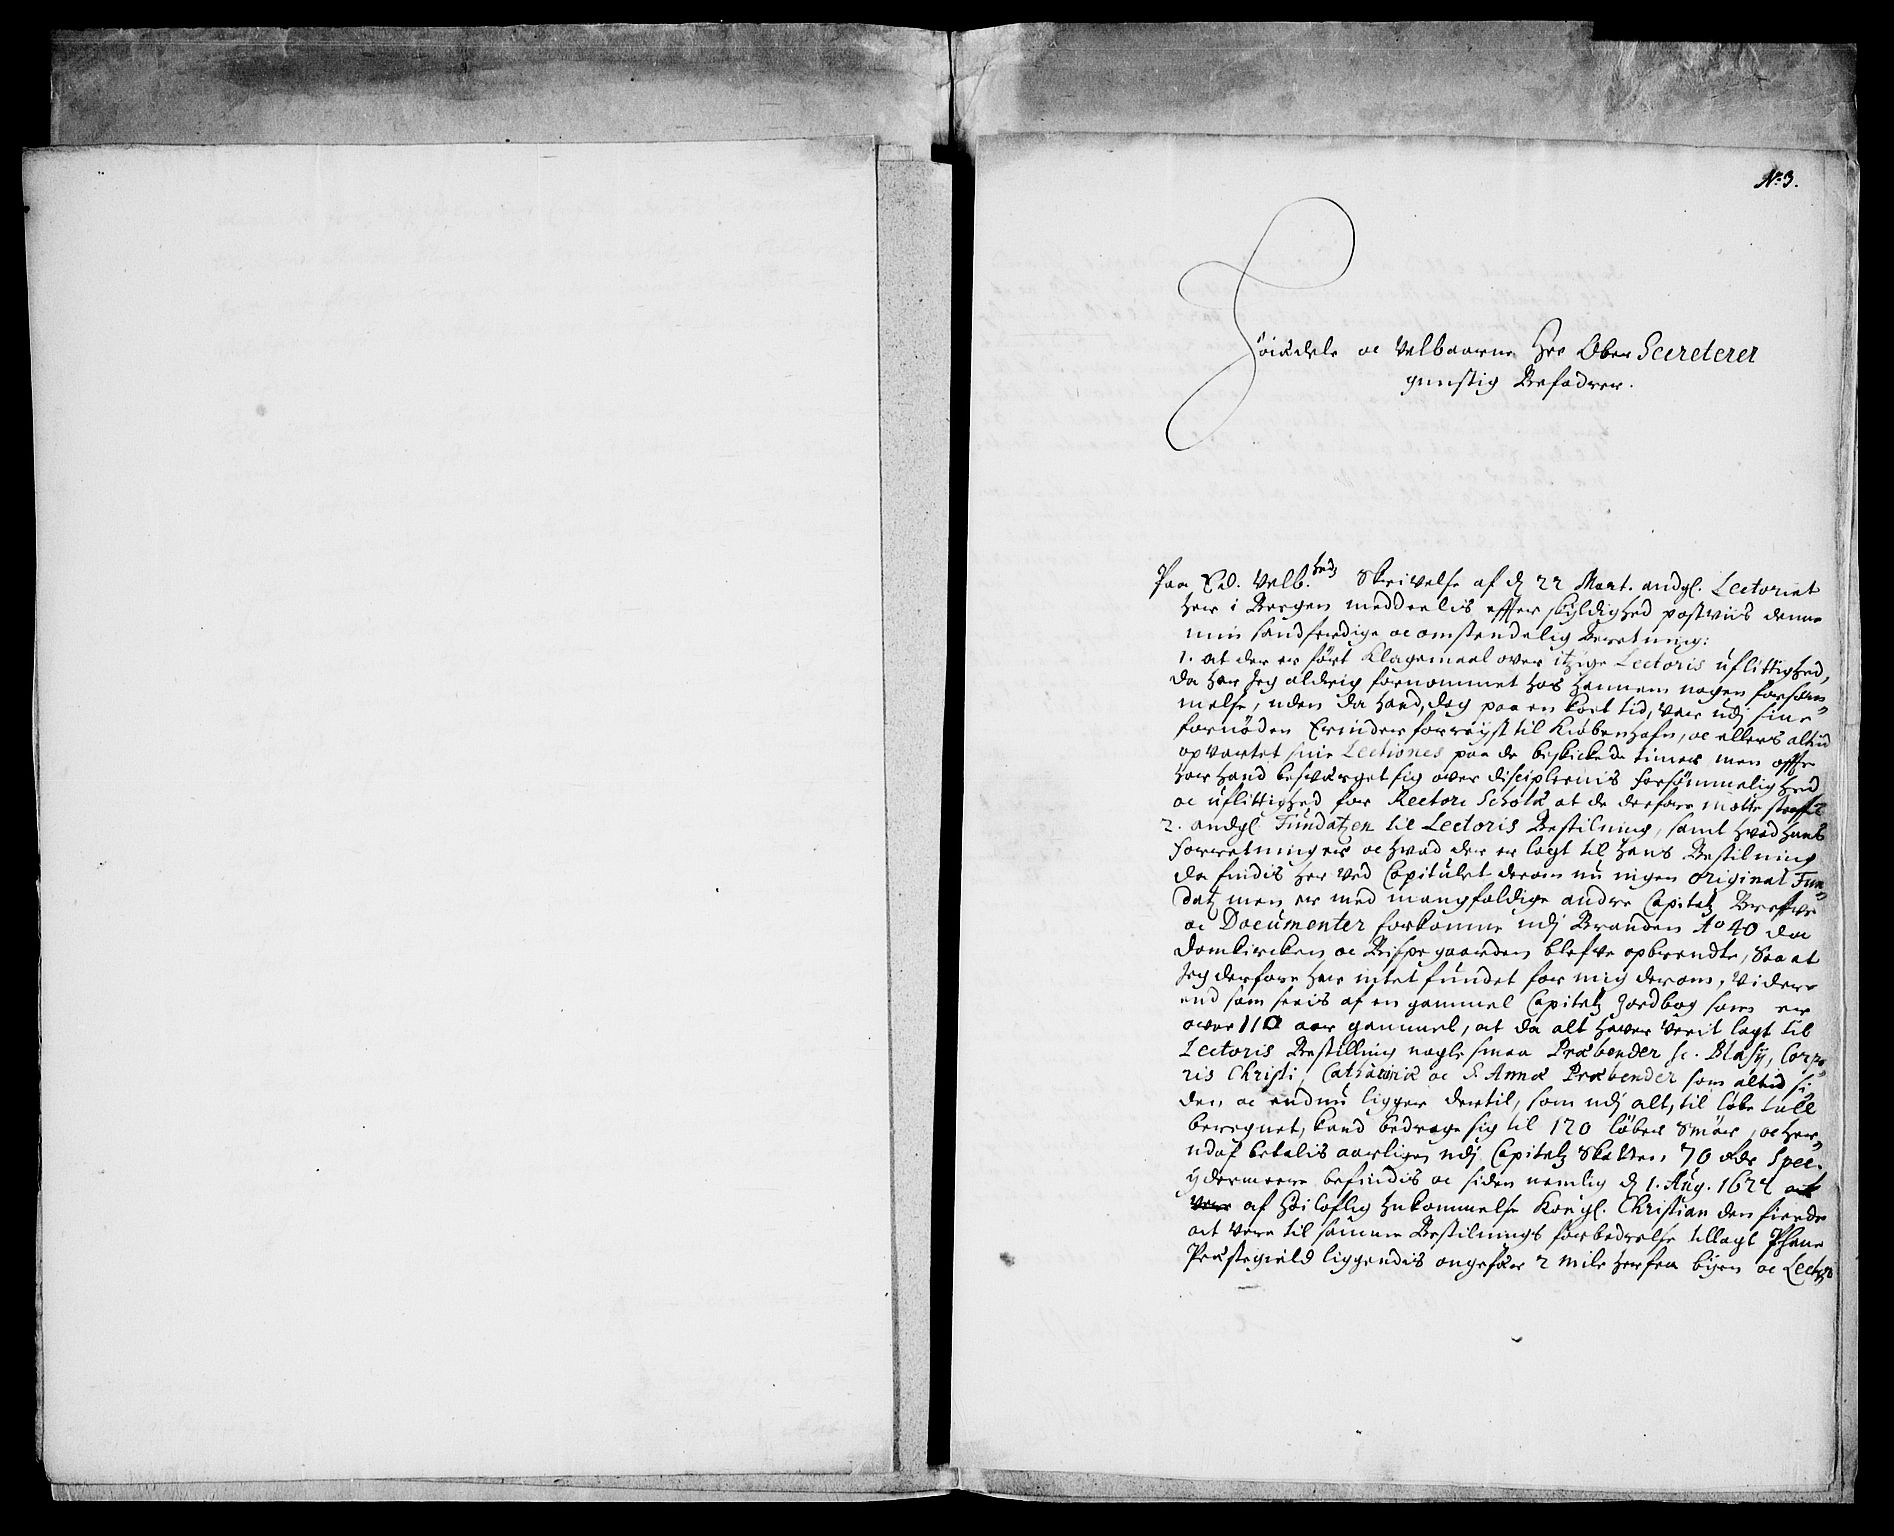 No 3.
Høiædele oc Velbaarne Her Ober Secreterer
gunstig Befodrer.
Paa Ed. Velb.hedz Skrivelse af d 22 Mart. andgl. Lectoriet
her i Bergen meddeelis effter skyldighed postviis denne
min sandferdige oc omstendelig Beretning:
1. at der erført Klagemaal over itzige Lectoris uflittighed,
da har Jeg aldrig fornommet hos hannem nogen forsøm„
melse, uden da hand, dog paa en kort tid, var udj sine
fornöden Erinder forreyst til Kiøbenhafn, oc ellers altid
opvartet sine Lectiones paa de beskickede timer, men offte
har hand besværget sig over disciplernis forsömmelighed
oc uflittighed for Rectore Scholæ at de derfore motte straffis
2. andgl. Fundatzen til Lectoris Bestilning, samt hvad hans
forretninger oc hvad der er lagt til hans Bestilning
da findis her ved Capitulet derom nu ingen original Fun„
datz men er med mangfoldige andre Capitelz Breffve
oc Documenter forkomne udj Branden Ao 40 da
Domkircken oc Bispegaarden blefve opbrendte, Saa at
Jeg derfore har intet fundet for mig derom, videre
end som seeis af en gammel Capitelz Jordbog som er
over 110 aar gammel, at da alt haver verit lagt til
Lectoris Bestilling nogle smaa Præbender sc. Blasij, Corpo„
ris Christi, Catharinæ oc S. Annæ Præbender som altid si
den oc endnu ligger dertil, som udj alt, til løbe tall
beregnet, kand bedrage sig til 170 løber Smör, oc her„
udaf betalis aarligen udj Capitelz Skatten 70 Rdr Spec.
ydermeere befindis oc siden nemlig d 1. Aug. 1622 at
af Høiloflig Hukommelse Kongl. Christian den fierde
at vere til samme Bestilnings forbedrelse tillagt Phane
Præstegield liggendis ongefær 2 mile herfra byen oc Lectoris